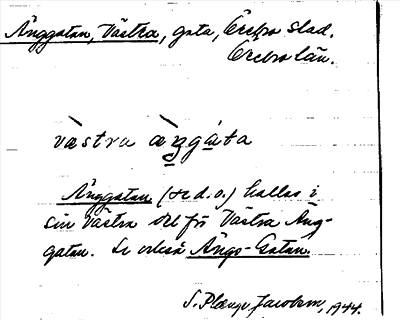 Änggatan, Västra, gata, Örebro stad.
Örebro län.
västra ànggàta
Änggatan (se d. o.) kallas i
sin västra del för Västra Äng-
gatan. Se också Ängs-Gatan.
S. Plænge Jacobson, 1944.